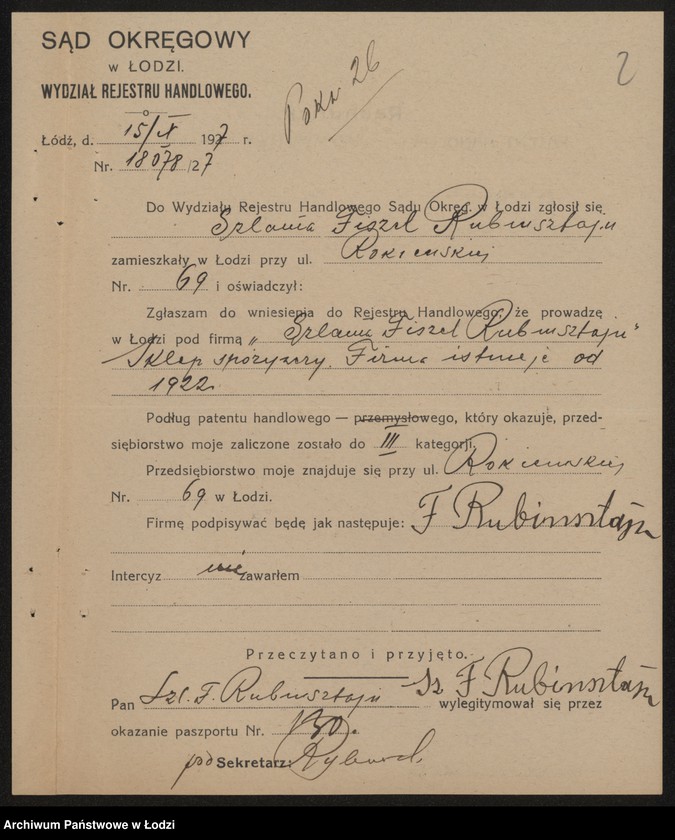 SĄD OKRĘGOWY
W ŁODZI.
WYDZIAŁ REJESTRU HANDLOWEGO.
2
Łódź, d. 15/X 1927 r.
Nr. 18078/27
Do Wydziału Rejestru Handlowego Sądu Okręg. w Łodzi zgłosił się
Szlama Fiszel Rubinsztajn
zamieszkały w Łodzi przy ul. Rokicińskiej
Nr. 69 i oświadczył:
Zgłaszam do wniesienia do Rejestru Handlowego, że prowadzę
w Łodzi pod firmą „Szlama Fiszel Rubinsztajn"
Sklep spożywczy. Firma istnieje od
1922
Podług patentu handlowego — przemysłowego, który okazuje, przed-
siębiorstwo moje zaliczone zostało do III kategorji.
Przedsiębiorstwo moje znajduje się przy ul. Rokicińskiej
Nr. 69 w Łodzi.
Firmę podpisywać będę jak następuje: F Rubinsztajn
Intercyz nie zawarłem
Przeczytano i przyjęto.
Sz F Rubinsztajn
Pan Szl. F. Rubinsztajn wylegitymował się przez
okazanie paszportu Nr. 130.
pod Sekretarz:
Archiwum Państwowe w Łodzi